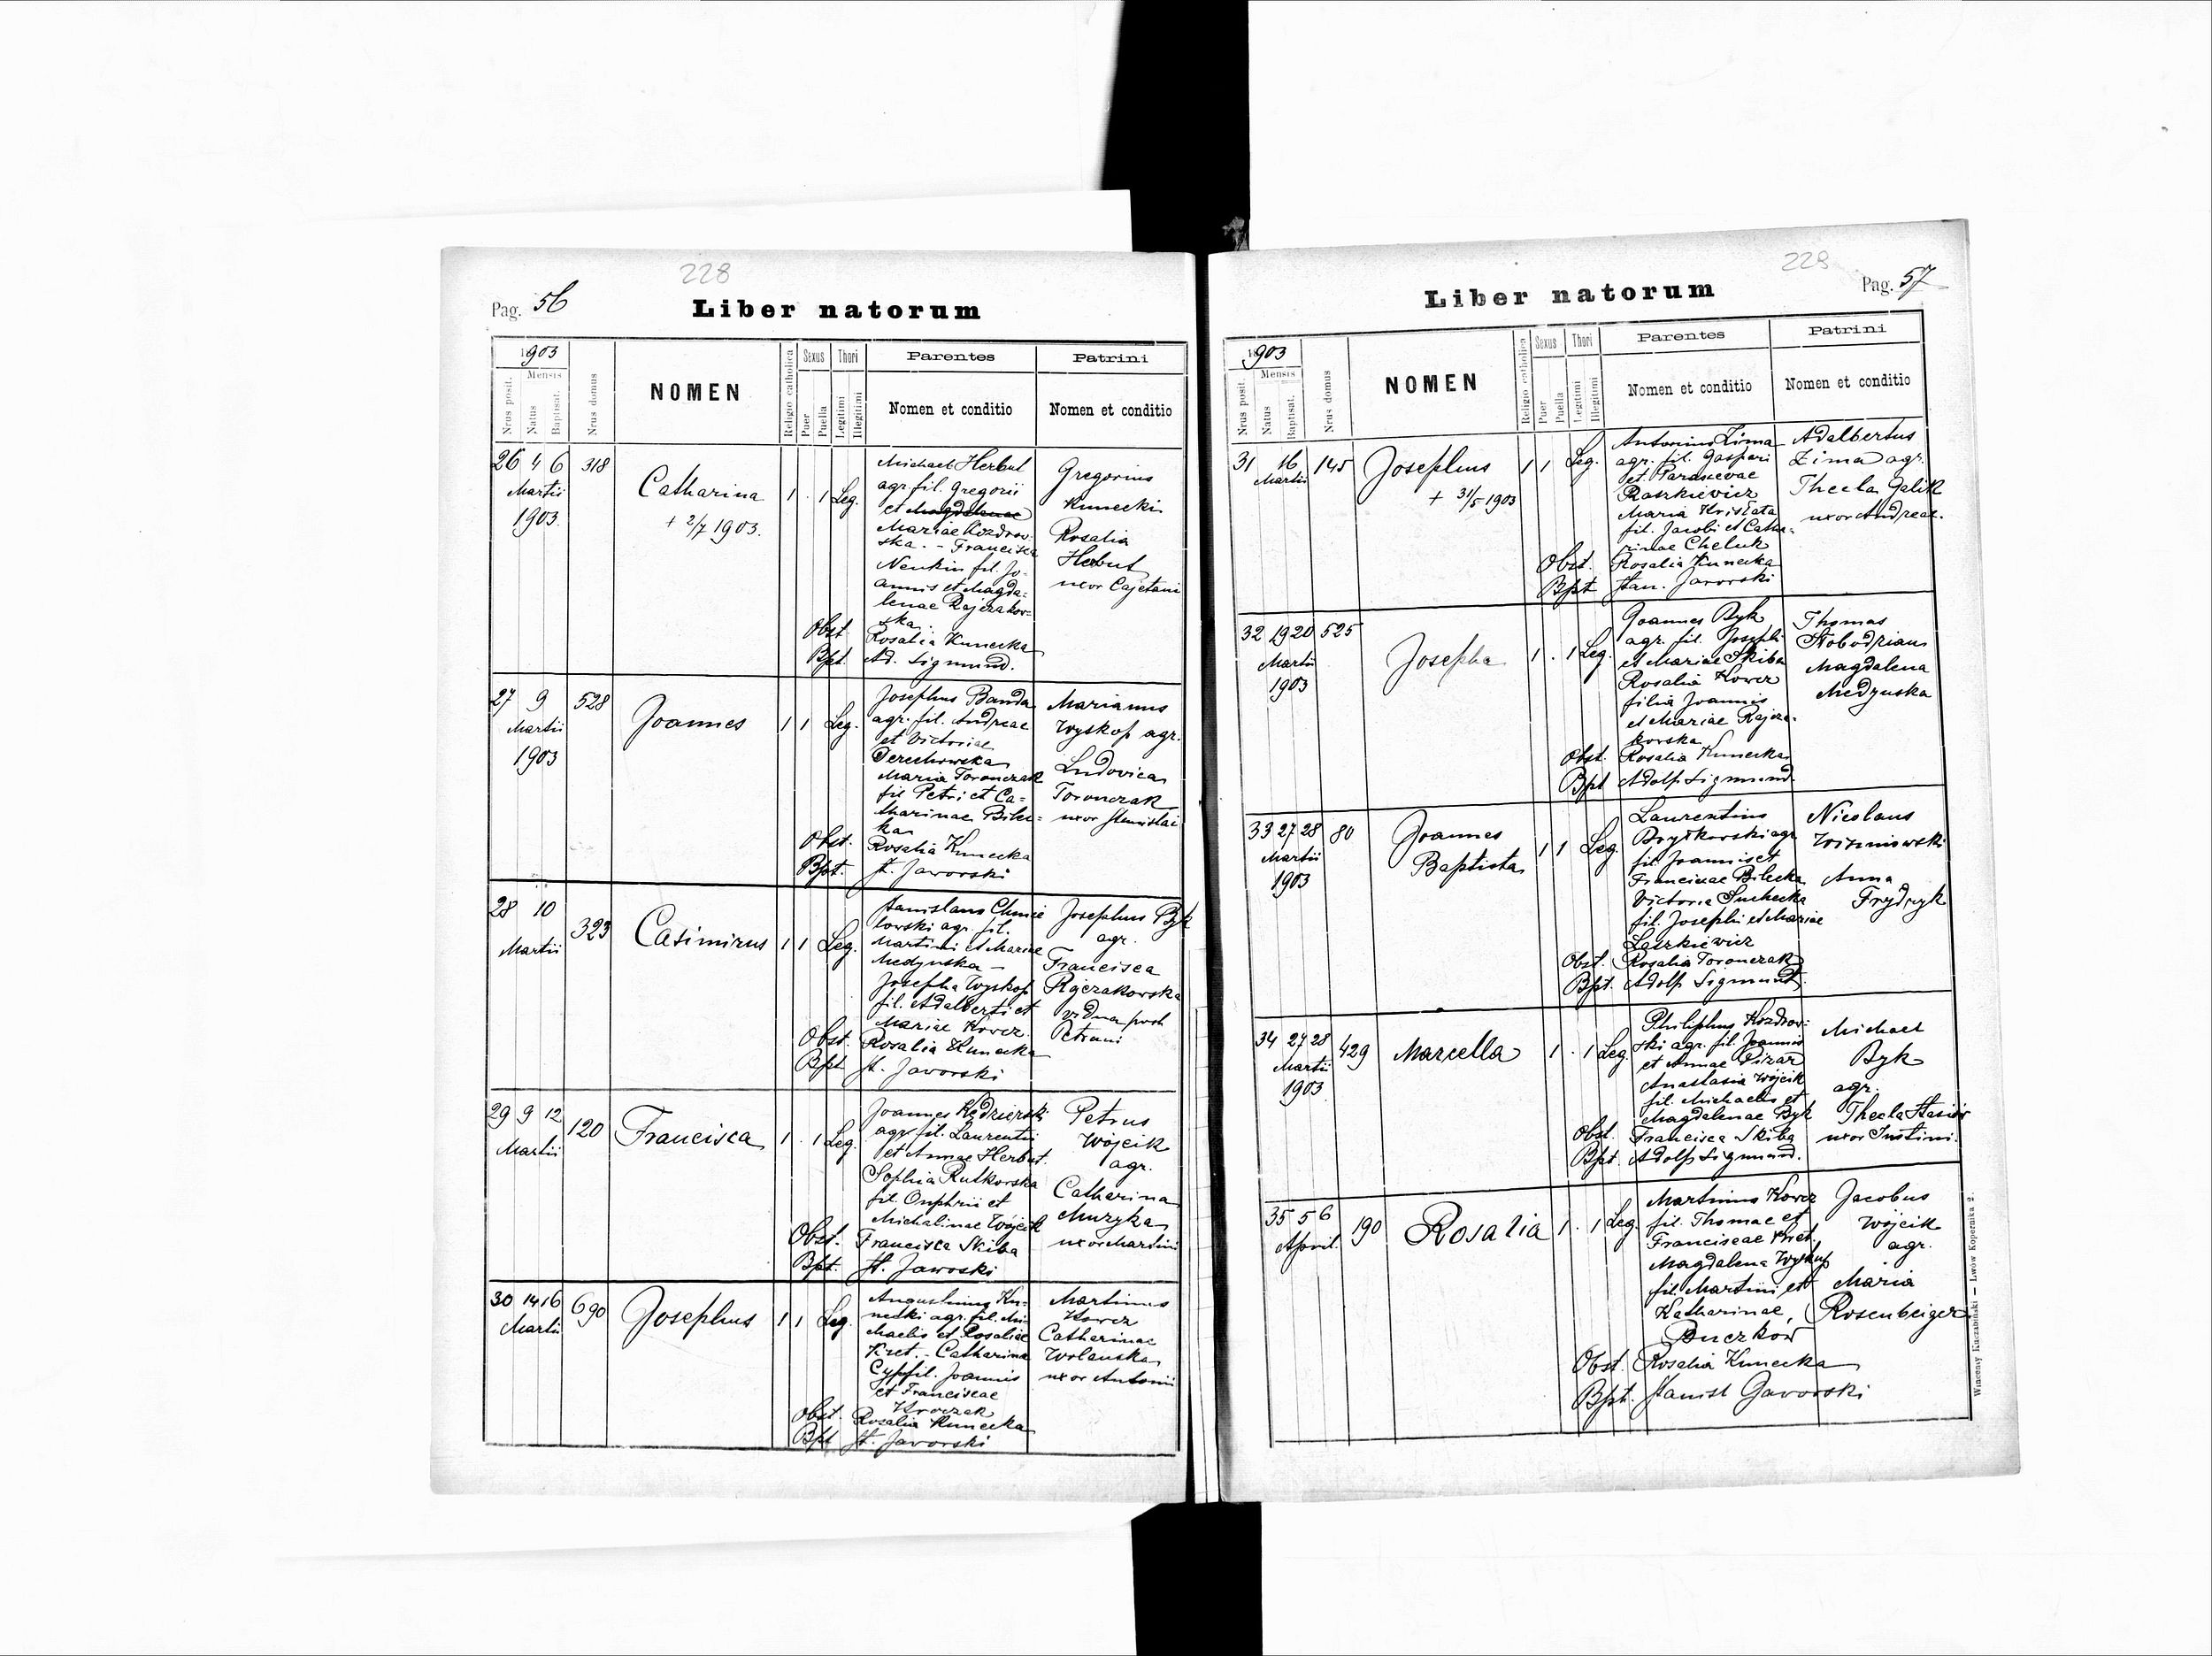 228
Pag. 56
Liber natorum
1903
Mensis
Nrus posit.
Natus
Baptisat.
Nrus domus
NOMEN
Religio catholica
Sexus
Puer
Puella
Thori
Legitimi
Illegitimi
Parentes
Nomen et conditio
Patrini
Nomen et conditio
26 4 6 318
Martii
1903.
Catharina
+ 2/7 1903.
1 . 1 Leg.
Michael Herbut
agr. fil. Gregorii
et Magdalenae
Mariae Kozdrow
ska. - Francisca
Neukin fil. Jo-
annis et Magda-
lenae Rajczakow-
ska.
Obst. Rosalia Kunecka
Bpt. Ad. Sigmund.
Gregorius
Kunecki
Rosalia
Herbut
uxor Cajetani
27 9 528
Martii
1903
Joannes
1 1 Leg.
Josephus Banda
agr. fil. Andreae
et Victoriae
Derechowska
Maria Toronczak
fil Petri et Ca-
tharinae Bilec-
ka
Obst. Rosalia Kunecka
Bpt. St. Jaworski
Marianus
Wyskop agr.
Ludovica
Toronczak
uxor Stanislai
28 10 323
Martii
Casimirus
1 1 Leg.
Stanislaus Chmie
lowski agr. fil.
Martini et Mariae
Medynska -
Josepha Wyskop
fil. Adalberti et
Mariae Kowcz.
Obst. Rosalia Kunecka
Bpt St. Jaworski
Josephus Byk
agr.
Francisca
Rajczakowska
vidua post
29 9 12 120
Martii
Francisca
1 . 1 Leg.
Joannes Kędzierski
agr. fil. Laurentii
et Annae Herbut.
Sophia Rutkowska
fil. Onphrii et
Michalinae Wójcik
Obst. Francisca Skiba
Bpt. St. Jawoski
Petrus
Wójcik
agr.
Catharina
Muzyka
uxor Martini
30 14 16 690
Martii
Josephus
1 1 Leg.
Augustinus Ku-
necki agr. fil. Mi-
chaelis et Rosaliae
Kret. - Catharina
Cyp fil. Joannis
et Franciscae
Obst. Rosalia Kunecka
Bpt St. Jaworski
Martinus
Kowcz
Catharinae
Wolanska
uxor Antonii
229
Liber natorum
Pag. 57
1903
Mensis
Nrus posit.
Natus
Baptisat.
Nrus domus
NOMEN
Religio catholica
Sexus
Puer
Puella
Thori
Legitimi
Illegitimi
Parentes
Nomen et conditio
Patrini
Nomen et conditio
31 16 145
Martii
Josephus
+ 31/5 1903
1 1 Leg.
Antonius Zima
agr. fil. Gaspari
et Parascevae
Raszkiewicz
Maria Kristata
fil. Jacobi et Catha-
rinae Cheluk
Obst. Rosalia Kunecka
Bpt Stan. Jaworski
Adalbertus
Zima agr.
Thecla Galik
uxor Andreae.
32 19 20 525
Martii
1903
Josepha
1 . 1 Leg.
Joannes Byk
agr. fil. Josephi
et Mariae Skiba
Rosalia Kowcz
filia Joannis
et Mariae Rajcza-
kowska
Obst. Rosalia Kunecka
Bpt Adolf Sigmund
Thomas
Slobodzian
Magdalena
Medynska
33 27 28 80
Martii
1903
Joannes
Baptista
1 1 Leg.
Laurentius
Brytkowski agr
fil. Joannis et
Francisae Bilecka
Victoria Suchecka
fil. Josephi et Mariae
Laszkiewicz
Obst. Rosalia Toronczak
Bpt. Adolf Sigmund
Nicolaus
Wiszniowski
Anna
Frydryk
34 27 28 429
Martii
1903
Marcella
1 . 1 Leg.
Philiphus Kozdrow-
ski agr. fil. Joannis
et Annae Pizar
Anastasia Wójcik
fil. Michaelis et
Magdalenae Byk
Obst. Francisca Skiba
Bpt. Adolf Sigmund.
Michael
Byk
agr.
Thecla Stasiów
uxor Justini.
35 5 6 190
April.
Rosalia
1 . 1 Leg
Martinus Kowcz
fil. Thomae et
Franciscae Kret,
Magdalena Wyskup
fil. Martini et
Katharinae,
Buczkow
Obst. Rosalia Kunecka
Bpt. Stanisl Jaworski
Jacobus
Wójcik
agr.
Maria
Rosenbeiger
Wincenty Kuczabiński — Lwów Kopernika 2.